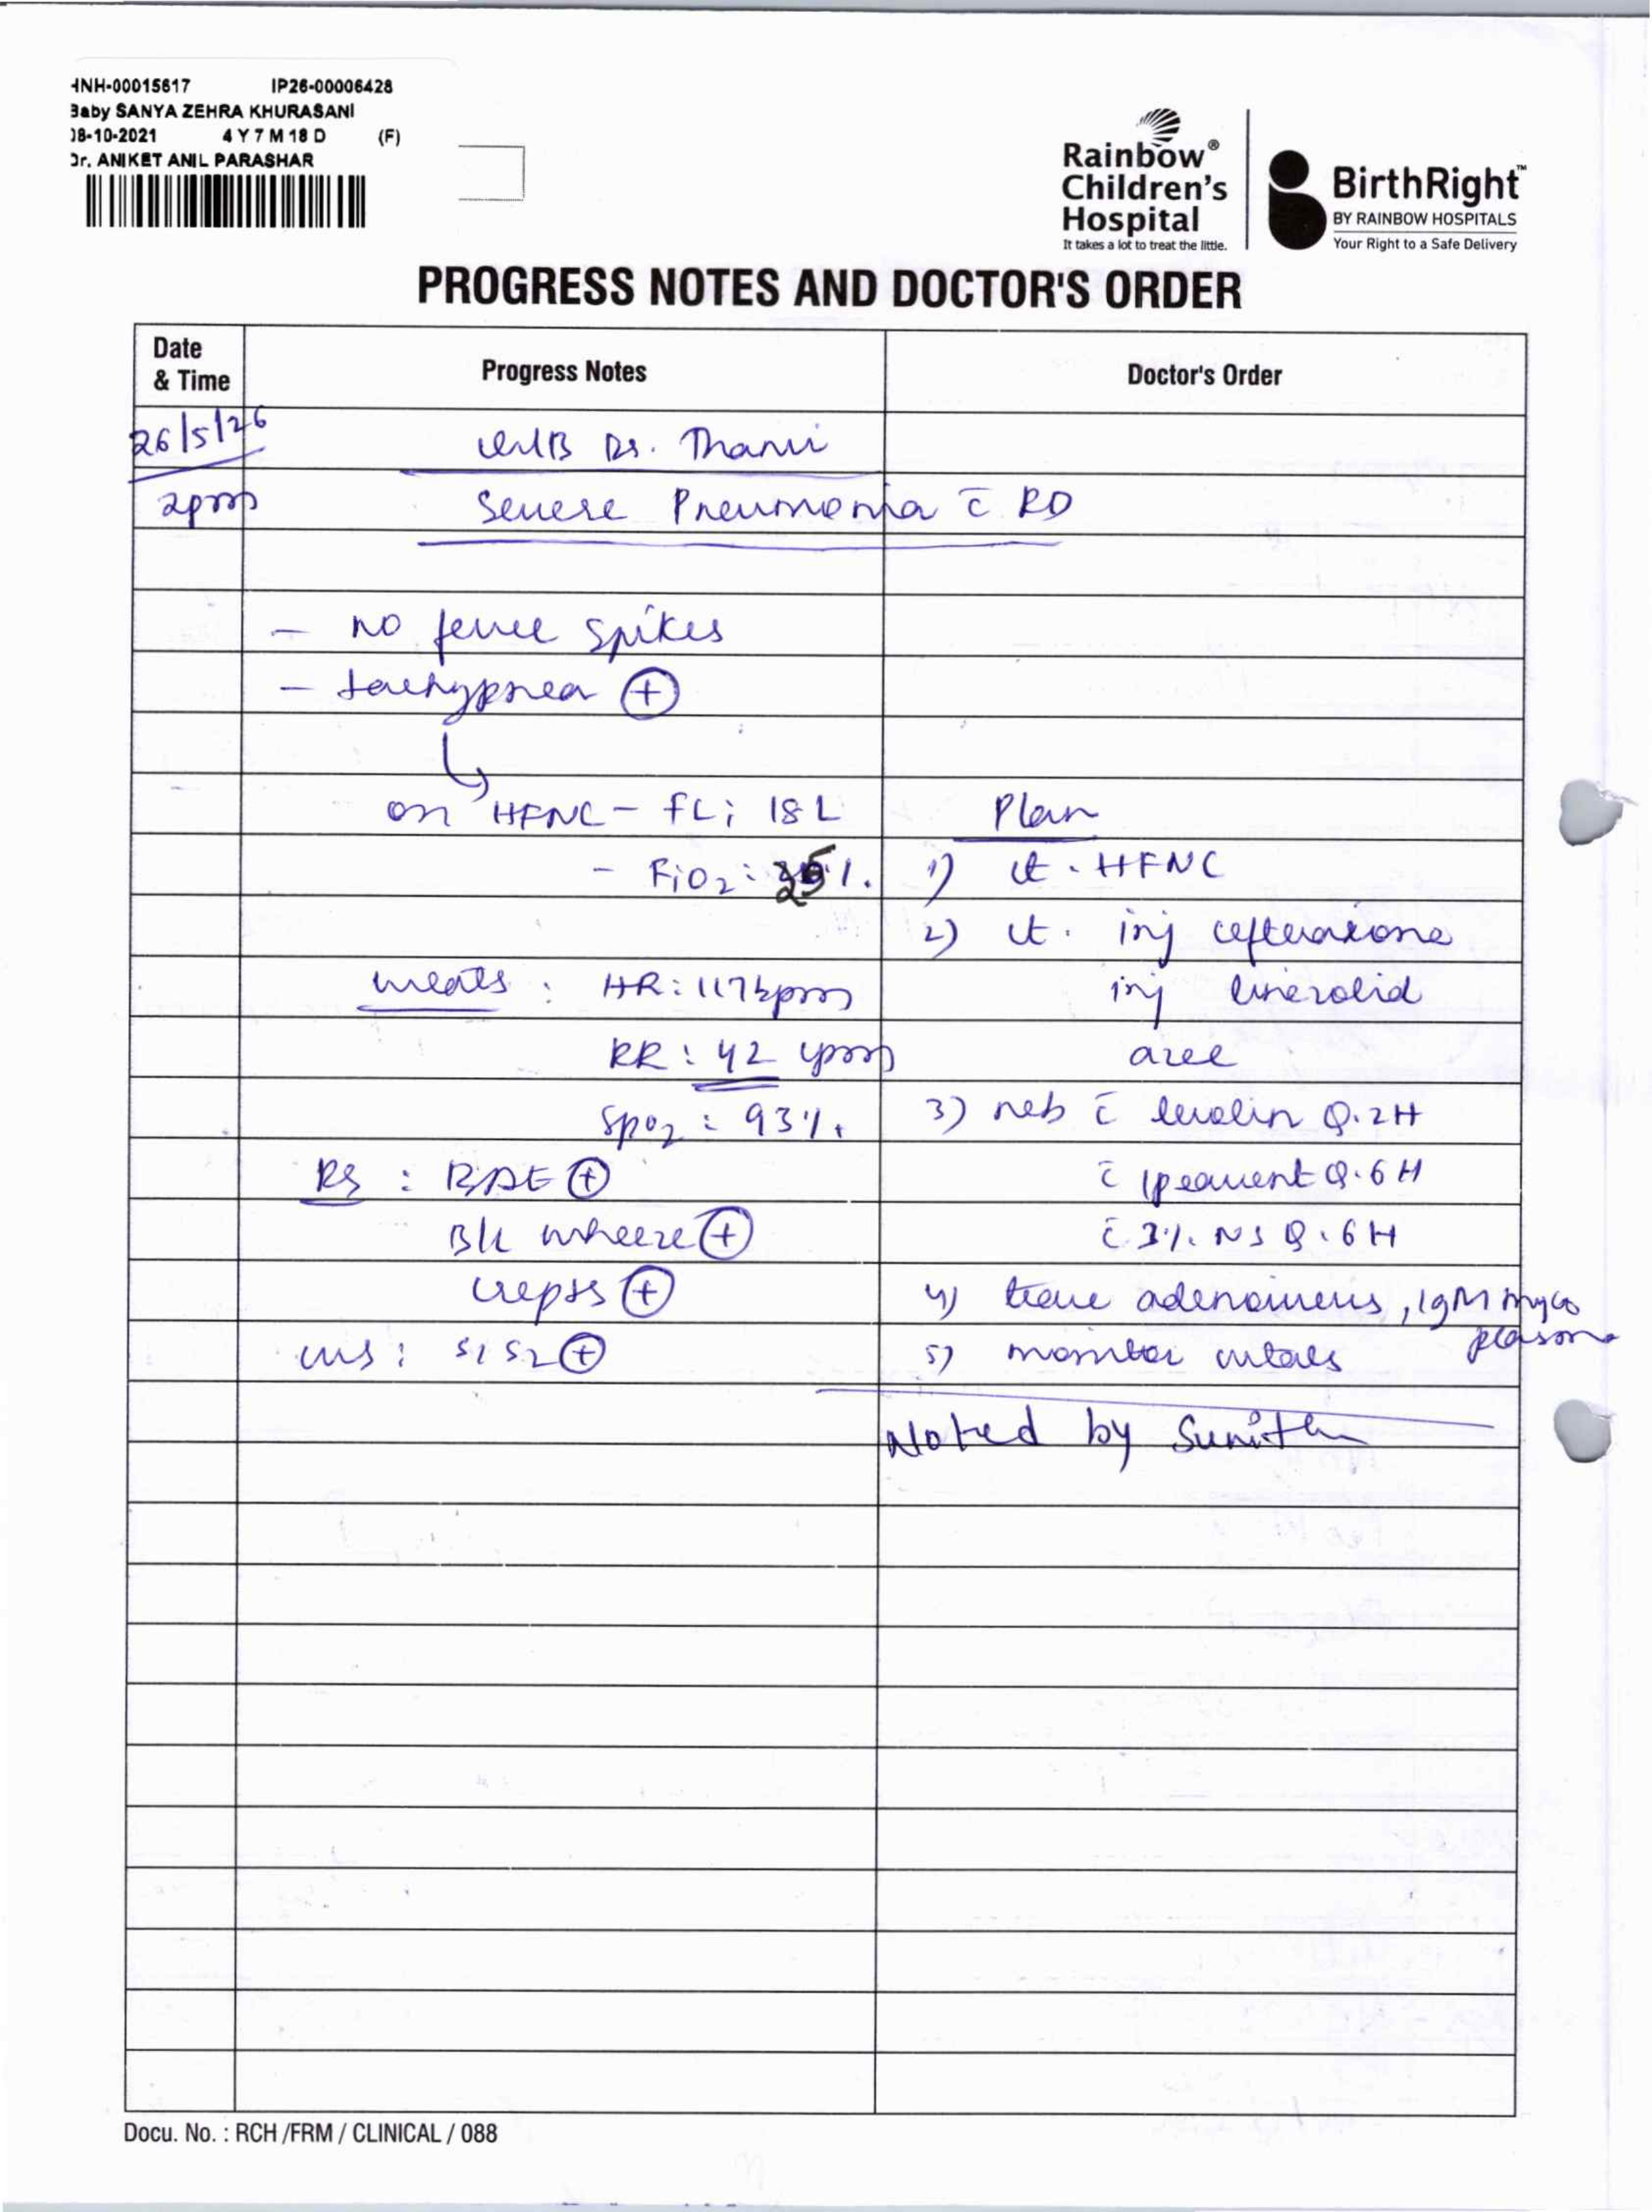 HNH-00015617 IP26-00006428
Baby SANYA ZEHRA KHURASANI
08-10-2021 4 Y 7 M 18 D (F)
Dr. ANIKET ANIL PARASHAR
Rainbow®
Children's
Hospital
It takes a lot to treat the little.
BirthRight™
BY RAINBOW HOSPITALS
Your Right to a Safe Delivery
PROGRESS NOTES AND DOCTOR'S ORDER
Date
& Time
Progress Notes
Doctor's Order
26/5/26
Dr. Thanvi
2pm
Severe Pneumonia c̄ RD
- no fever spikes
- tachypnea ⊕
on HFNC - FL: 18 L
Plan
- FiO2: 25%.
1) ct. HFNC
2) ct. inj ceftriaxone
vitals : HR: 117bpm
inj linezolid
RR: 42 cpm
azee
SpO2: 93%.
3) neb c̄ levolin Q.2H
RS : BAE ⊕
c̄ Ipravent Q.6H
B/L wheeze ⊕
c̄ 3%. NS Q.6H
crepts ⊕
4) trace adenovirus, IgM myco
plasma
CVS: S1 S2 ⊕
5) monitor vitals
Noted by Sunitha
Docu. No. : RCH /FRM / CLINICAL / 088